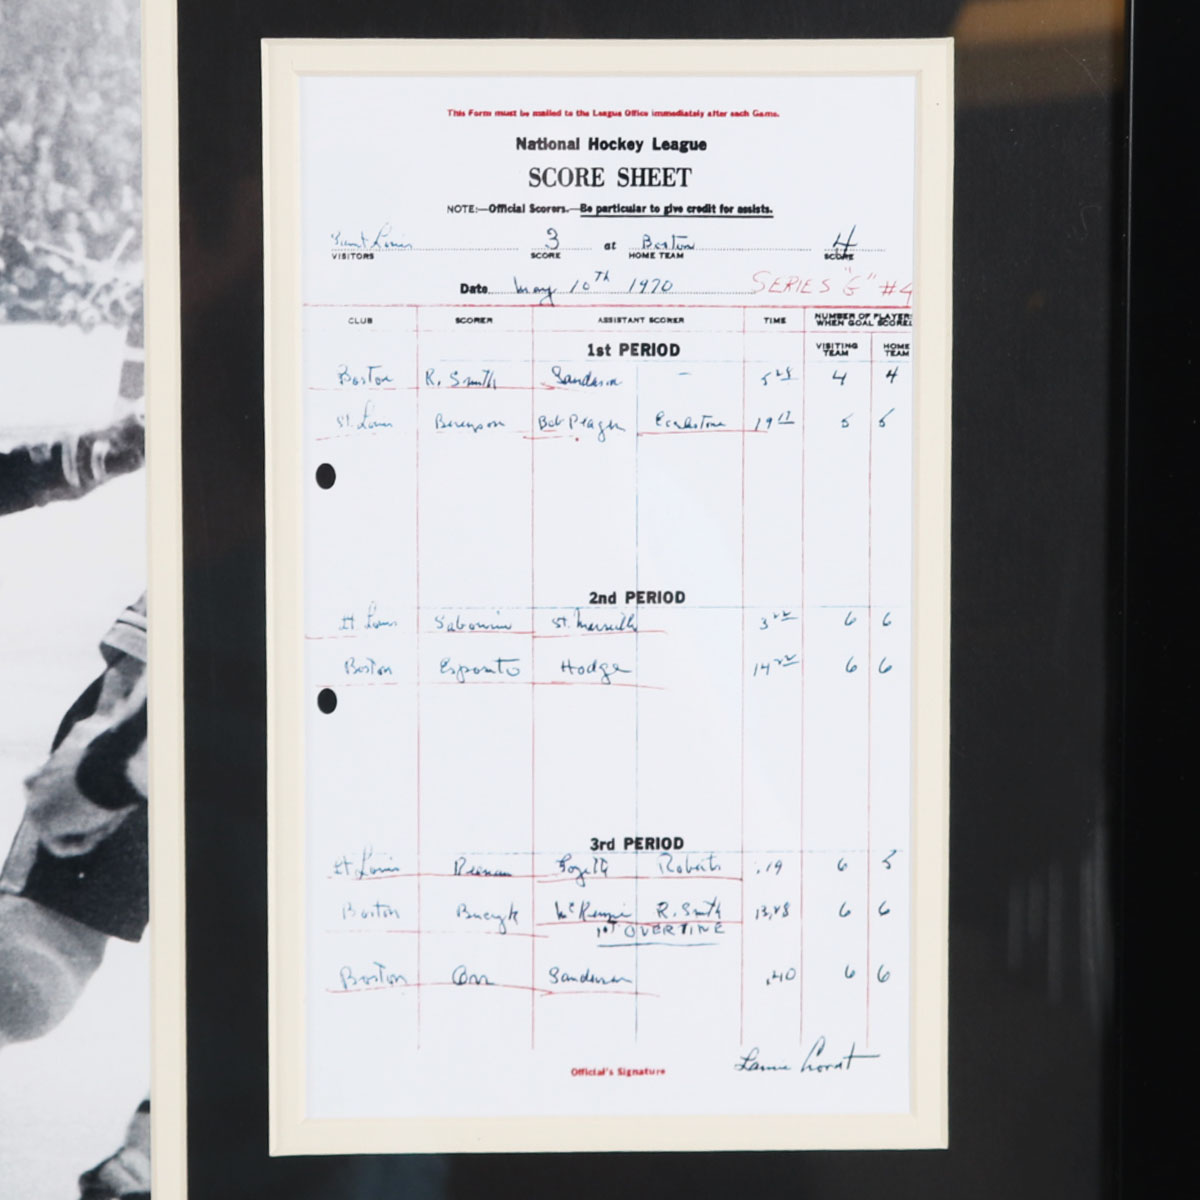 This Form must be mailed to the League Office immediately after each Game.
National Hockey League
SCORE SHEET
NOTE:—Official Scorers.—Be particular to give credit for assists.
Saint Louis 3 at Boston 4
VISITORS SCORE HOME TEAM SCORE
Date May 10th 1970 SERIES "G" #4
CLUB SCORER ASSISTANT SCORER TIME NUMBER OF PLAYERS WHEN GOAL SCORED
VISITING TEAM HOME TEAM
1st PERIOD
Boston R. Smith Sanderson – 5 28 4 4
St. Louis Berenson Bob Plager Ecclestone 19 17 5 5
2nd PERIOD
St. Louis Sabourin St. Marseille 3 22 6 6
Boston Esposito Hodge 14 22 6 6
3rd PERIOD
St. Louis Keenan Roberts .19 6 5
Boston Bucyk McKenzie R. Smith 13.28 6 6
1st OVERTIME
Boston Orr Sanderson .40 6 6
Official's Signature